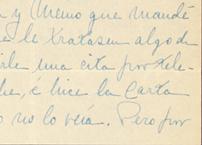 y Memo que mandé
le tratasen algo de
una cita por tele-
é hice la Carta
no lo veía. Pero por